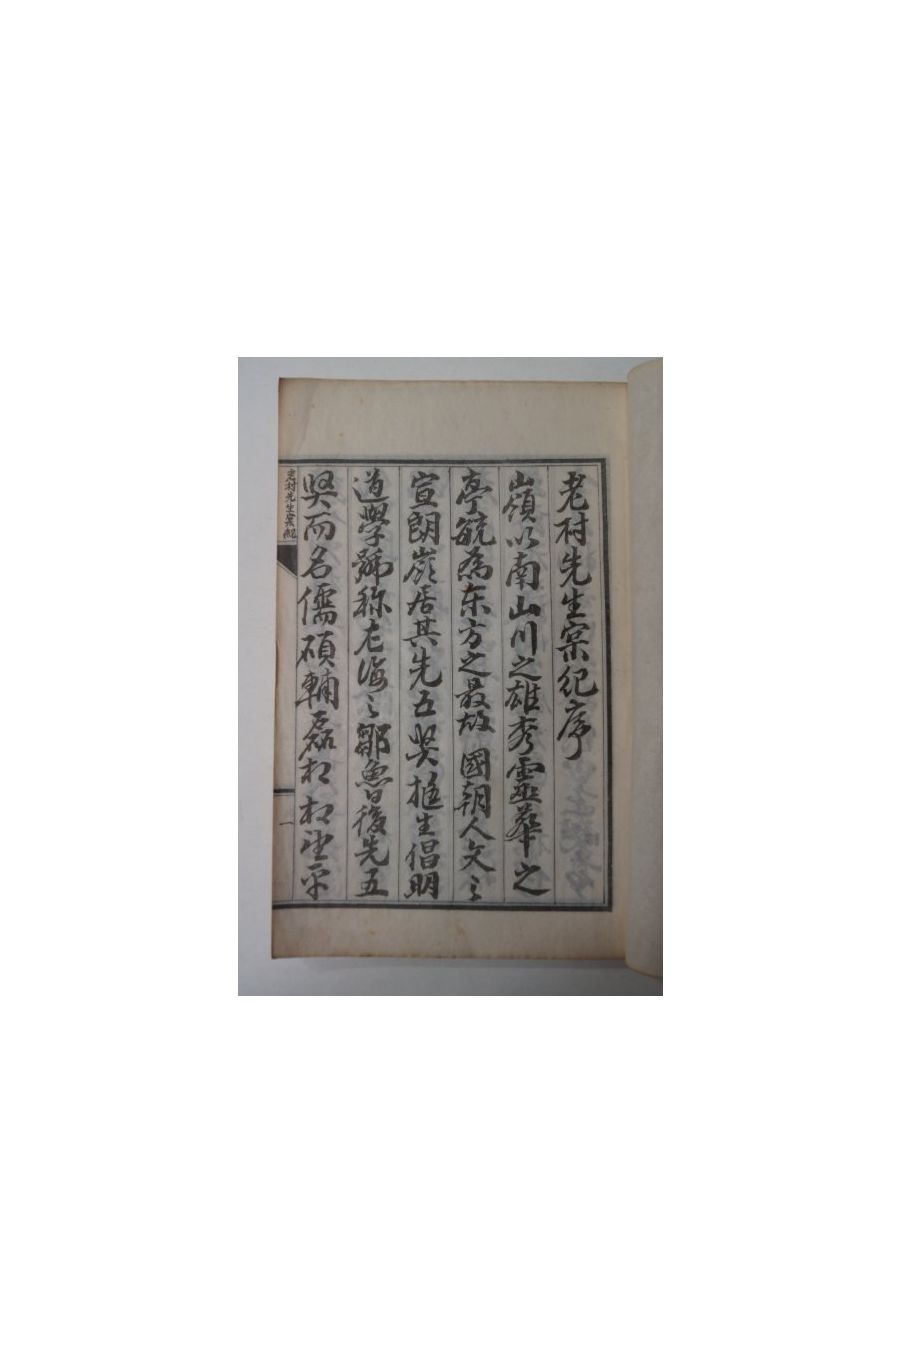 老村先生宲紀序
嶺以南山川之雄秀靈華之
亭毓為东方之最故 國朝人文之
宣朗嶺居其先五賢挺生倡明
道學號称左海之鄒魯後先五
賢而名儒碩輔磊相相望乎
老村先生宲紀
一